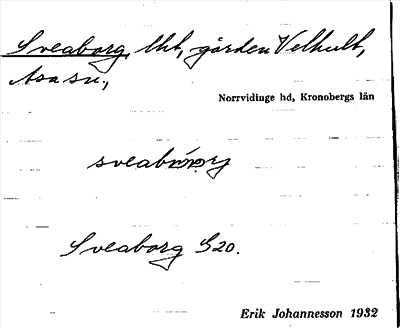 Sveaborg, lht, gården Velhult,
Asa sn.,
Norrvidinge hd, Kronobergs län
Sveaborg G20.
Erik Johannesson 1932